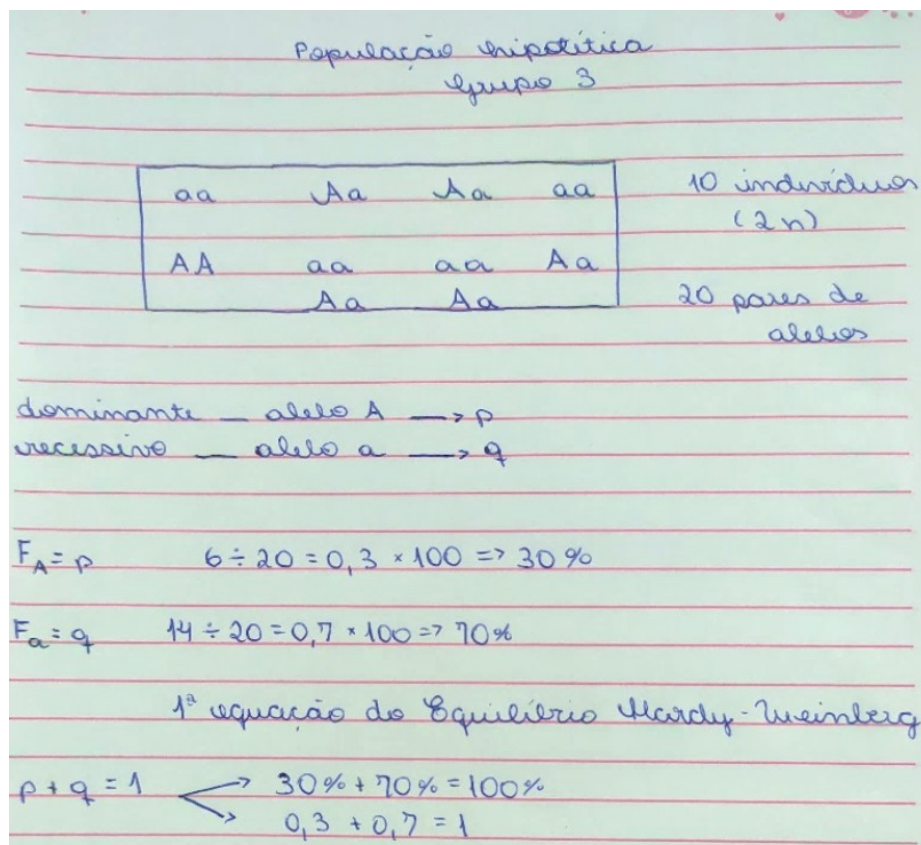 População hipotítica
Grupo 3
aa Aa Aa aa
10 indivíduos
(2n)
AA aa aa Aa
Aa Aa
20 pares de
alelos
dominante — alelo A → p
recessivo — alelo a → q
F_A = p 6 ÷ 20 = 0,3 × 100 => 30%
F_a = q 14 ÷ 20 = 0,7 × 100 => 70%
1ª equação do Equilíbrio Hardy-Weinberg
p + q = 1 → 30% + 70% = 100%
→ 0,3 + 0,7 = 1